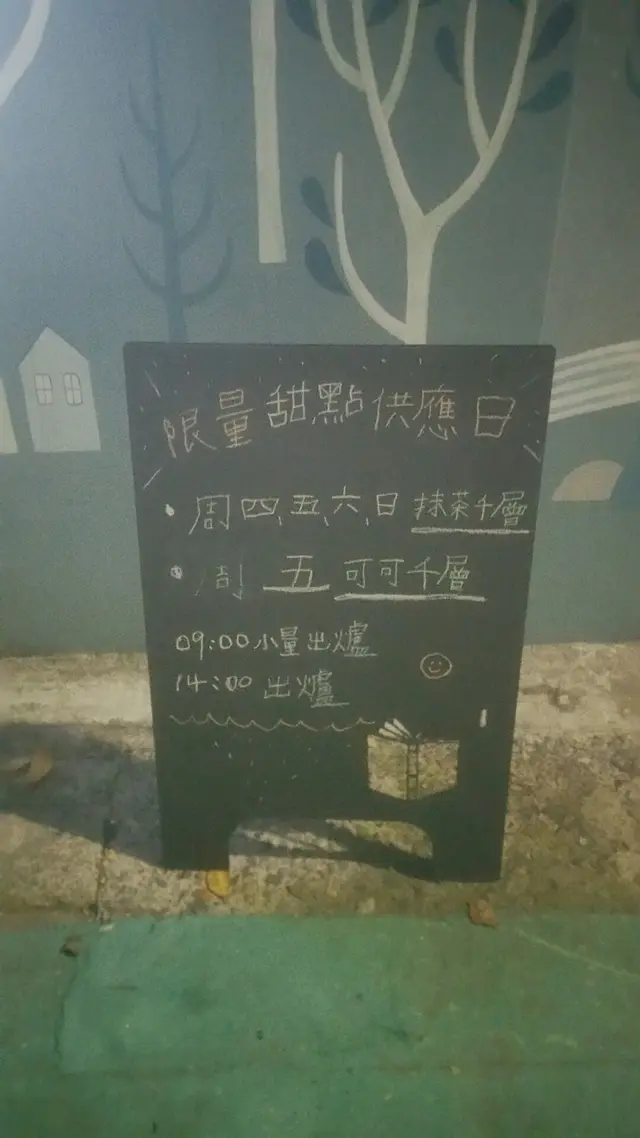 限量甜點供應日
• 周四、五、六、日 抹茶千層
• 周 五 可可千層
09:00 小量出爐
14:00 出爐